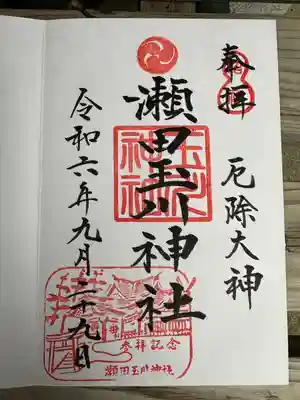 奉拝
厄除大神
瀬田玉川神社
令和六年九月二十九日
参拝記念
瀬田玉川神社